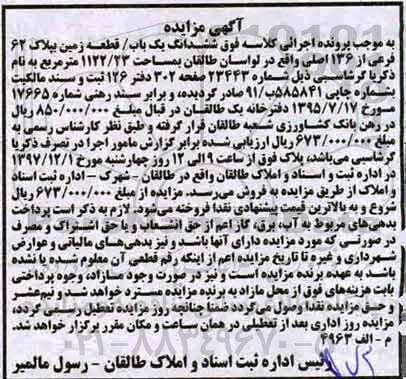 آگهی مزایده
به موجب پرونده اجرائی کلاسه فوق ششدانگ یک باب/ قطعه زمین پلاک ۶۲
فرعی از ۱۳۶ اصلی واقع در لواسان طالقان بمساحت ۱۱۲۲/۲۳ مترمربع به نام
ذکریا گرشاسبی ذیل شماره ۲۳۴۴۳ صفحه ۳۰۲ دفتر ۱۲۶ ثبت و سند مالکیت
بشماره چاپی ۵۸۵۸۴۱ب/۹۱ صادر گردیده، و برابر سند رهنی شماره ۱۷۶۶۵
مورخ ۱۳۹۵/۷/۱۷ دفترخانه یک طالقان در قبال مبلغ ۸۵۰/۰۰۰/۰۰۰ ریال
در رهن بانک کشاورزی شعبه طالقان قرار گرفته و طبق نظر کارشناس رسمی به
مبلغ ۶۷۳/۰۰۰/۰۰۰ ریال ارزیابی شده برابر گزارش مامور اجرا در تصرف ذکریا
گرشاسبی می‌باشد، پلاک فوق از ساعت ۹ الی ۱۲ روز چهارشنبه مورخ ۱۳۹۷/۱۲/۱
در اداره ثبت و اسناد و املاک طالقان واقع در طالقان - شهرک - اداره ثبت اسناد
و املاک از طریق مزایده به فروش می‌رسد. مزایده از مبلغ ۶۷۳/۰۰۰/۰۰۰ ریال
شروع و به بالاترین قیمت پیشنهادی نقدا فروخته می‌شود. لازم به ذکر است پرداخت
بدهی‌های مربوط به آب، برق، گاز اعم از حق انشعاب و یا حق اشتراک و مصرف
در صورتی که مورد مزایده دارای آنها باشد و نیز بدهی‌های مالیاتی و عوارض
شهرداری و غیره تا تاریخ مزایده اعم از اینکه رقم قطعی آن معلوم شده یا نشده
باشد به عهده برنده مزایده است و نیز در صورت وجود مازاد، وجوه پرداختی
بابت هزینه‌های فوق از محل مازاد به برنده مزایده مسترد خواهد شد و نیم‌عشر
و حق مزایده نقدا وصول می‌گردد ضمنا چنانچه روز مزایده تعطیل رسمی گردد،
مزایده روز اداری بعد از تعطیلی در همان ساعت و مکان مقرر برگزار خواهد شد.
م - الف ۴۹۶۳
رئیس اداره ثبت اسناد و املاک طالقان - رسول مالمیر